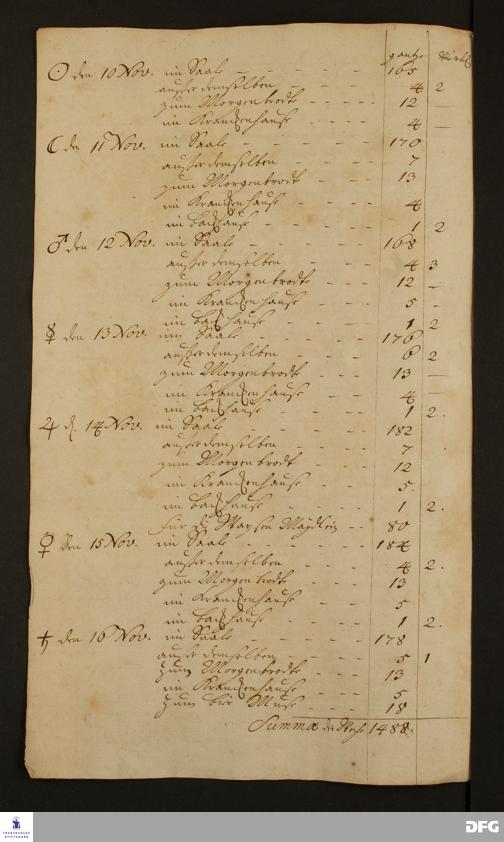 gantze Viertel
☉ den 10 Nov. im Saale - - - - - 165
außer demselben - - - - 4 2
zum Morgenbrodte - - - - 12 —
im Kranckenhause - - - - 4 —
☾ den 11 Nov. im Saale - - - - - 170
außer demselben - - - - 7
zum Morgenbrodt - - - 13
im Kranckenhause - - - 4
im backhause - - - - 1 2
♂ den 12 Nov. im Saale - - - - 168
außer demselben - - - 4 3
zum Morgenbrodte - - - 12 -
im Kranckenhause - - - 5 -
im backhause - - - - 1 2
☿ den 13 Nov. im Saale - - - - 176
außer demselben - - - 6 2
zum Morgenbrodte - - - 13 —
im Kranckenhause - - - 4 —
im backhause - - - - 1 2.
♃ d. 14 Nov. im Saale - - - - - 182
außer demselben - - - 7
zum Morgenbrodt - - - 12
im Kranckenhause - - - 5.
im backhause - - - - 1 2.
für die Waysen Mägdlein - - 80
♀ den 15 Nov. im Saale - - - - - 184
außer demselben - - - - 4 2.
zum Morgenbrodte - - - 13
im Kranckenhause - - - 5
im backhause - - - - 1 2.
♄ den 16 Nov. im Saale - - - - - 178
außer demselben - - - - 5 1
zum Morgenbrodte - - - 13
im Kranckenhause - - - 5
zum bier Muse - - - - 18
Summa der Woche 1488.
FRANCKESCHE STIFTUNGEN
DFG